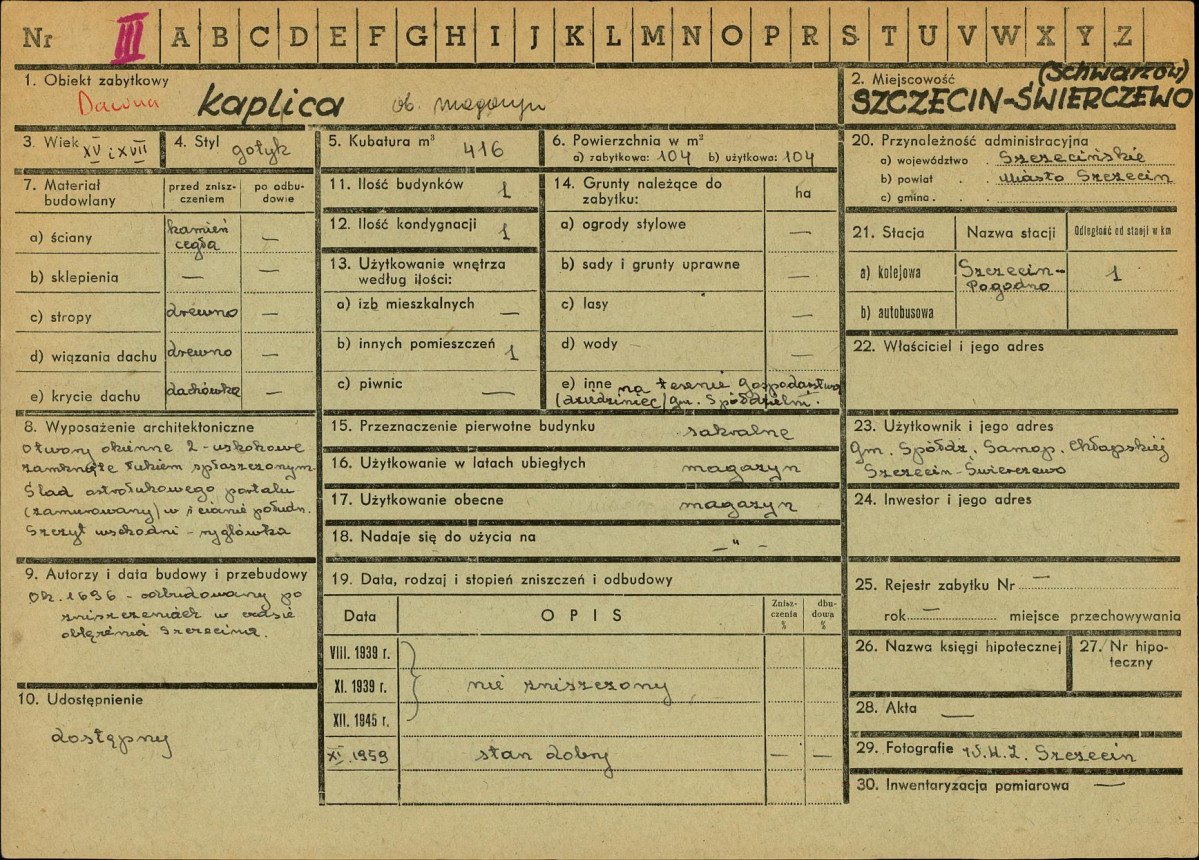 Nr III A B C D E F G H I J K L M N O P R S T U V W X Y Z
1. Obiekt zabytkowy
Dawna kaplica ob. magazyn
2. Miejscowość (Schwarzow)
SZCZECIN-ŚWIERCZEWO
3. Wiek XV i XVII
4. Styl gotyk
5. Kubatura m³ 416
6. Powierzchnia w m²
a) zabytkowa: 104 b) użytkowa: 104
7. Materiał budowlany
przed zniszczeniem
po odbudowie
a) ściany kamień cegła —
b) sklepienia — —
c) stropy drewno —
d) wiązania dachu drewno —
e) krycie dachu dachówka —
8. Wyposażenie architektoniczne
Otwory okienne 2-uskokowe
zamknięte łukiem spłaszczonym
Ślad ostrołukowego portalu
(zamurowany) w ścianie połudn.
Szczyt wschodni - ryglówka
9. Autorzy i data budowy i przebudowy
Ok. 1696 - odbudowany po
zniszczeniach w czasie
oblężenia Szczecina.
10. Udostępnienie
dostępny
11. Ilość budynków 1
12. Ilość kondygnacji 1
13. Użytkowanie wnętrza
według ilości:
a) izb mieszkalnych —
b) innych pomieszczeń 1
c) piwnic —
14. Grunty należące do
zabytku: ha
a) ogrody stylowe —
b) sady i grunty uprawne —
c) lasy —
d) wody —
e) inne na terenie gospodarstwa
(dziedziniec) gm. Spółdzieln.
15. Przeznaczenie pierwotne budynku sakralne
16. Użytkowanie w latach ubiegłych magazyn
17. Użytkowanie obecne magazyn
18. Nadaje się do użycia na — " —
19. Data, rodzaj i stopień zniszczeń i odbudowy
Data OPIS Zniszczenia % dbudowa %
VIII. 1939 r.
XI. 1939 r. nie zniszczony
XII. 1945 r.
XI. 1959 stan dobry — —
20. Przynależność administracyjna
a) województwo . Szczecińskie
b) powiat . . miasto Szczecin
c) gmina . .
21. Stacja Nazwa stacji Odległość od stacji w km
a) kolejowa Szczecin-Pogodno 1
b) autobusowa
22. Właściciel i jego adres
23. Użytkownik i jego adres
Gm. Spółdz. Samop. Chłopskiej
Szczecin-Świerczewo
24. Inwestor i jego adres
25. Rejestr zabytku Nr —
rok — miejsce przechowywania
26. Nazwa księgi hipotecznej
27. Nr hipoteczny
28. Akta —
29. Fotografie W.K.Z. Szczecin
30. Inwentaryzacja pomiarowa —